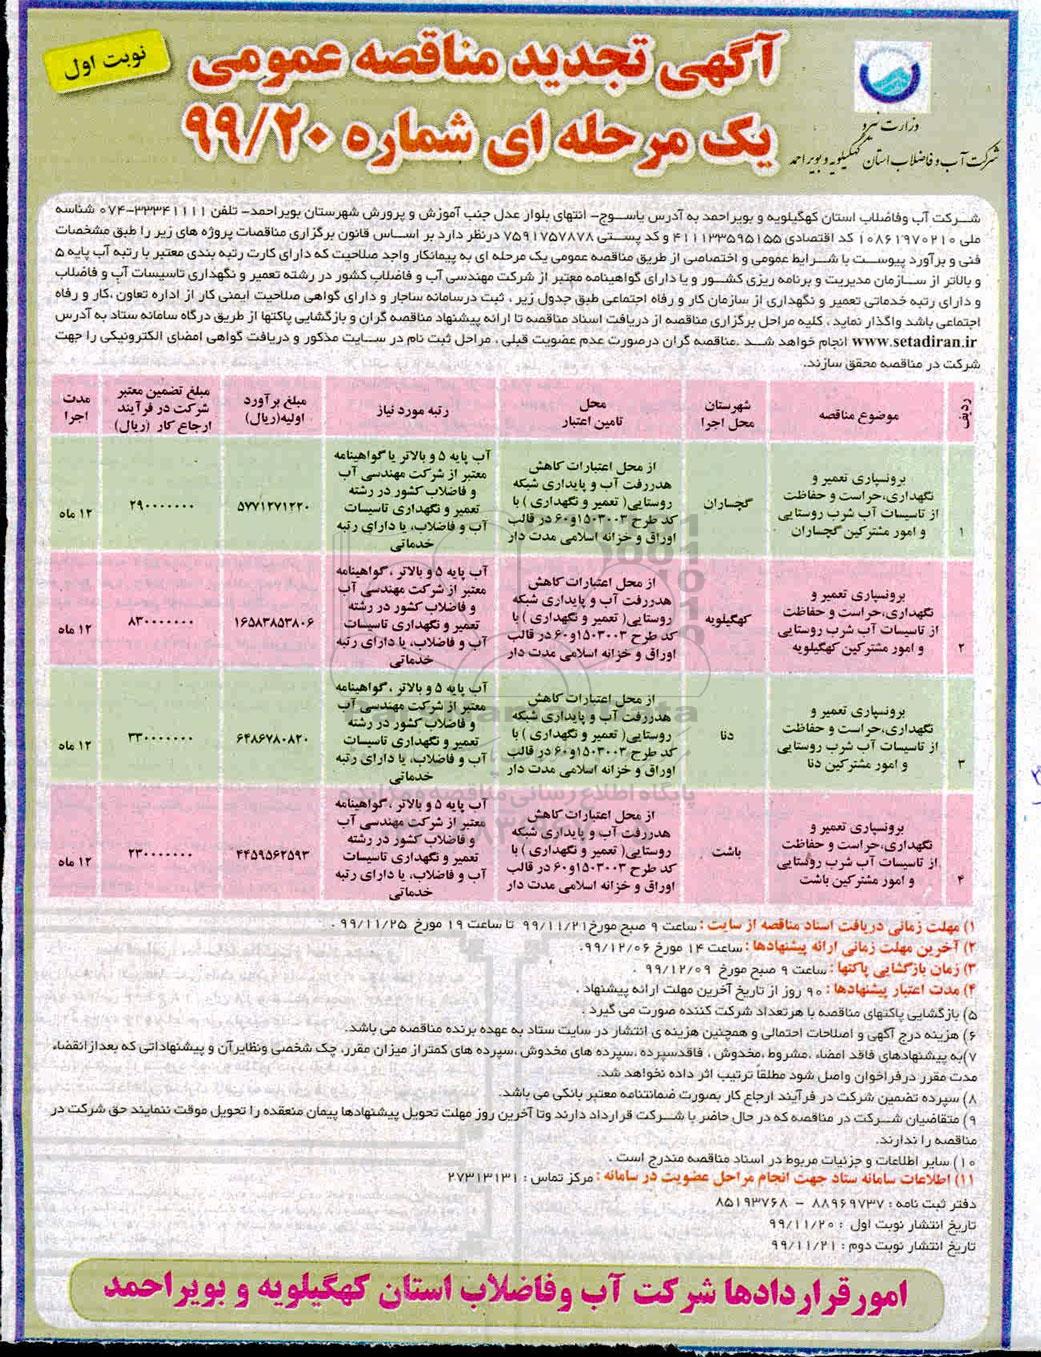 نوبت اول
آگهی تجدید مناقصه عمومی
یک مرحله ای شماره ۹۹/۲۰
وزارت نیرو
شرکت آب و فاضلاب استان کهگیلویه و بویراحمد
شـرکت آب وفاضلاب استان کهگیلویه و بویراحمد به آدرس یاسـوج- انتهای بلوار عدل جنب آموزش و پرورش شهرستان بویراحمد- تلفن ۳۳۳۴۱۱۱۱-۰۷۴ شناسه
ملی ۱۰۸۶۱۹۷۰۲۱۰ کد اقتصادی ۴۱۱۱۳۳۵۹۵۱۵۵ و کد پسـتی ۷۵۹۱۷۵۷۸۷۸ درنظر دارد بر اسـاس قانون برگزاری مناقصات پروژه های زیر را طبق مشخصات
فنی و برآورد پیوست با شـرایط عمومی و اختصاصی از طریق مناقصه عمومی یک مرحله ای به پیمانکار واجد صلاحیت که دارای کارت رتبه بندی معتبر با رتبه آب پایه ۵
و بالاتر از سـازمان مدیریت و برنامه ریزی کشـور و یا دارای گواهینامه معتبر از شرکت مهندسی آب و فاضلاب کشور در رشته تعمیر و نگهداری تاسیسات آب و فاضلاب
و دارای رتبه خدماتی تعمیر و نگهداری از سازمان کار و رفاه اجتماعی طبق جدول زیر ، ثبت درسامانه ساجار و دارای گواهی صلاحیت ایمنی کار از اداره تعاون ،کار و رفاه
اجتماعی باشد واگذار نماید . کلیه مراحل برگزاری مناقصه از دریافت اسناد مناقصه تا ارائه پیشنهاد مناقصه گران و بازگشایی پاکتها از طریق درگاه سامانه ستاد به آدرس
www.setadiran.ir انجام خواهد شـد .مناقصه گران درصورت عدم عضویت قبلی ، مراحل ثبت نام در سـایت مذکور و دریافت گواهی امضای الکترونیکی را جهت
شرکت در مناقصه محقق سازند.
ردیف
موضوع مناقصه
شهرستان
محل اجرا
محل
تامین اعتبار
رتبه مورد نیاز
مبلغ برآورد
اولیه(ریال)
مبلغ تضمین معتبر
شرکت در فرآیند
ارجاع کار (ریال)
مدت
اجرا
۱
برونسپاری تعمیر و
نگهداری،حراست و حفاظت
از تاسیسات آب شرب روستایی
و امور مشترکین گچساران
گچساران
از محل اعتبارات کاهش
هدررفت آب و پایداری شبکه
روستایی( تعمیر و نگهداری ) با
کد طرح ۱۵۰۳۰۰۳و۶۰ در قالب
اوراق و خزانه اسلامی مدت دار
آب پایه ۵ و بالاتر یا گواهینامه
معتبر از شرکت مهندسی آب
و فاضلاب کشور در رشته
تعمیر و نگهداری تاسیسات
آب و فاضلاب، یا دارای رتبه
خدماتی
۵۷۷۱۲۷۱۲۲۰
۲۹۰۰۰۰۰۰۰
۱۲ ماه
۲
برونسپاری تعمیر و
نگهداری،حراست و حفاظت
از تاسیسات آب شرب روستایی
و امور مشترکین کهگیلویه
کهگیلویه
از محل اعتبارات کاهش
هدررفت آب و پایداری شبکه
روستایی( تعمیر و نگهداری ) با
کد طرح ۱۵۰۳۰۰۳و۶۰ در قالب
اوراق و خزانه اسلامی مدت دار
آب پایه ۵ و بالاتر ، گواهینامه
معتبر از شرکت مهندسی آب
و فاضلاب کشور در رشته
تعمیر و نگهداری تاسیسات
آب و فاضلاب، یا دارای رتبه
خدماتی
۱۶۵۸۳۸۵۳۸۰۶
۸۳۰۰۰۰۰۰۰
۱۲ ماه
۳
برونسپاری تعمیر و
نگهداری،حراست و حفاظت
از تاسیسات آب شرب روستایی
و امور مشترکین دنا
دنا
از محل اعتبارات کاهش
هدررفت آب و پایداری شبکه
روستایی( تعمیر و نگهداری ) با
کد طرح ۱۵۰۳۰۰۳و۶۰ در قالب
اوراق و خزانه اسلامی مدت دار
آب پایه ۵ و بالاتر ، گواهینامه
معتبر از شرکت مهندسی آب
و فاضلاب کشور در رشته
تعمیر و نگهداری تاسیسات
آب و فاضلاب، یا دارای رتبه
خدماتی
۶۴۸۶۷۸۰۸۲۰
۳۳۰۰۰۰۰۰۰
۱۲ ماه
۴
برونسپاری تعمیر و
نگهداری،حراست و حفاظت
از تاسیسات آب شرب روستایی
و امور مشترکین باشت
باشت
از محل اعتبارات کاهش
هدررفت آب و پایداری شبکه
روستایی( تعمیر و نگهداری ) با
کد طرح ۱۵۰۳۰۰۳و۶۰ در قالب
اوراق و خزانه اسلامی مدت دار
آب پایه ۵ و بالاتر ، گواهینامه
معتبر از شرکت مهندسی آب
و فاضلاب کشور در رشته
تعمیر و نگهداری تاسیسات
آب و فاضلاب، یا دارای رتبه
خدماتی
۴۴۵۹۵۶۲۵۹۳
۲۳۰۰۰۰۰۰۰
۱۲ ماه
پایگاه اطلاع رسانی مناقصه و مزایده
۱) مهلت زمانی دریافت اسناد مناقصه از سایت : ساعت ۹ صبح مورخ۹۹/۱۱/۲۱ تا ساعت ۱۹ مورخ ۹۹/۱۱/۲۵ .
۲) آخرین مهلت زمانی ارائه پیشنهادها : ساعت ۱۴ مورخ ۹۹/۱۲/۰۶.
۳) زمان بازگشایی پاکتها : ساعت ۹ صبح مورخ ۹۹/۱۲/۰۹ .
۴) مدت اعتبار پیشنهادها : ۹۰ روز از تاریخ آخرین مهلت ارائه پیشنهاد .
۵) بازگشایی پاکتهای مناقصه با هرتعداد شرکت کننده صورت می گیرد .
۶) هزینه درج آگهی و اصلاحات احتمالی و همچنین هزینه ی انتشار در سایت ستاد به عهده برنده مناقصه می باشد.
۷)به پیشنهادهای فاقد امضاء ،مشروط،مخدوش ، فاقدسپرده ،سپرده های مخدوش ،سپرده های کمتراز میزان مقرر، چک شخصی ونظایرآن و پیشنهاداتی که بعدازانقضاء
مدت مقرر درفراخوان واصل شود مطلقاً ترتیب اثر داده نخواهد شد.
۸) سپرده تضمین شرکت در فرآیند ارجاع کار بصورت ضمانتنامه معتبر بانکی می باشد.
۹) متقاضیان شـرکت در مناقصه که در حال حاضر با شـرکت قرارداد دارند وتا آخرین روز مهلت تحویل پیشنهادها پیمان منعقده را تحویل موقت ننمایند حق شرکت در
مناقصه را ندارند.
۱۰) سایر اطلاعات و جزئیات مربوط در اسناد مناقصه مندرج است .
۱۱) اطلاعات سامانه ستاد جهت انجام مراحل عضویت در سامانه : مرکز تماس : ۲۷۳۱۳۱۳۱
دفتر ثبت نامه : ۸۸۹۶۹۷۳۷ - ۸۵۱۹۳۷۶۸
تاریخ انتشار نوبت اول : ۹۹/۱۱/۲۰
تاریخ انتشار نوبت دوم : ۹۹/۱۱/۲۱
امورقراردادها شرکت آب وفاضلاب استان کهگیلویه و بویراحمد